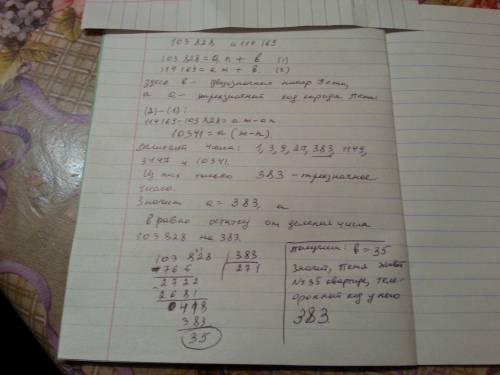 103 828 и 114 169
103 828 = a n + в (1)
114 169 = a m + в (2)
здесь в - двузначный номер Пети,
а a - трехзначный код города Пети
(2) - (1):
114169 - 103828 = a m - a n
10341 = a (m - n)
числа: 1, 3, 9, 27, 383, 1149,
3447 и 10341.
Из них только 383 - трехзначное
число.
Значит a = 383, а
в равно остатку от деления числа
103 828 на 383.
103 828 383
766 271
2722
2681
0418
383
35
Получили: в = 35
Значит, Петя живет
№35 квартире, теле-
фонный код у него
383